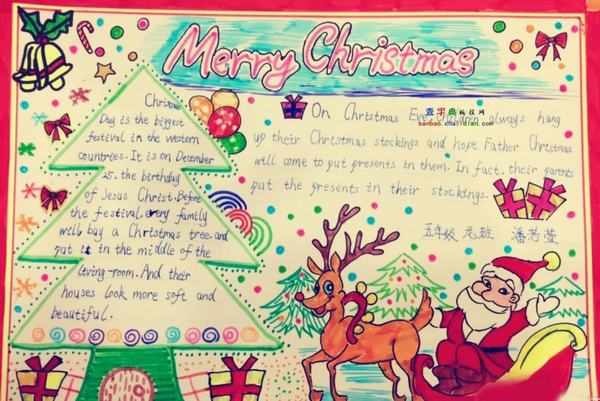 Merry Christmas
Christmas
Day is the biggest
festival in the western
countries. It is on December
25. the birthday
of Jesus Christ. Before
the festival, every family
will buy a Christmas tree and
put it in the middle of the
living-room. And their
houses look more soft and
beautiful.
On Christmas Eve, children always hang
up their Christmas stockings and hope Father Christmas
will come to put presents in them. In fact. their parents
put the presents in their stockings.
查字典
banbao.chazidian.com
五年级 班 潘芳莹